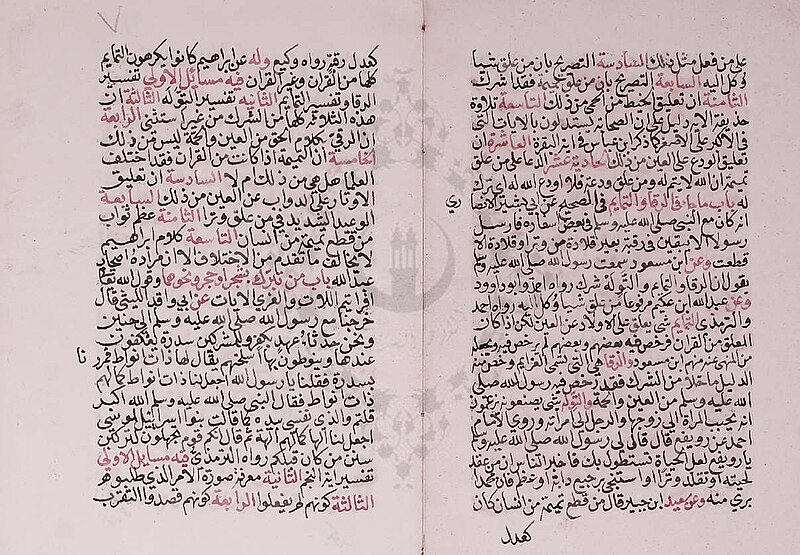 على من فعل مثل ذلك السادسة التصريح بان من علق شيأ
وُكل اليه السابعة التصريح بان من علق تميمة فقد اشرك
الثامنة ان تعليق الخيط من الحمى من ذلك التاسعة تلاوة
حذيفة الاية دليل على ان الصحابة يستدلون بالايات التي
في الاكبر على الاصغر كما ذكر ابن عباس في اية البقرة العاشرة ان
تعليق الودع على العين من ذلك الحادية عشر الدعا على من علق
تميمة ان الله لا يتم له ومن علق ودعة فلا ودع الله له اي ترك
له باب ما جاء في الرقا والتمايم في الصحيح عن ابي بشير الانصاري
انه كان مع النبي صلى الله عليه وسلم في بعض سفاره فارسل
رسولا ان لا يبقين في رقبة بعير قلادة من وتر او قلادة الا
قطعت وعن ابن مسعود سمعت رسول الله صلى الله عليه وسلم
يقول ان الرقا والتمايم والتولة شرك رواه احمد وابو داوود
وعن عبد الله ابن عكيم مرفوعا من علق شيأ وكل اليه رواه احمد
والترمذي التمايم شي يعلق على الاولاد عن العين لكن اذا كان
المعلق من القران فرخص فيه بعضهم وبعضهم لم يرخص فيه ويجعله
من المنهى عنه منهم ابن مسعود والرقا هي التي تسمى العزايم وخص منه
الدليل ما خلا من الشرك فقد رخص فيه رسول الله صلى
الله عليه وسلم من العين والحمة والتوله شي يصنعونه يزعمون
انه يحبب المراة الى زوجها والرجل الى مراته وروى الامام
احمد عن رويفع قال قال لي رسول الله صلى الله عليه وسلم
يا رويفع لعل الحياة تستطول بك فاخبر الناس ان من عقد
لحيته او تقلد وترا او استنجى برجيع دابة او عظم فان محمدا
بري منه وعن سعيد ابن جبير قال من قطع تميمة من انسان كان
كعدل
كعدل رقبة رواه وكيع وله عن ابراهيم كانوا يكرهون التمايم
كلها من القران وغير القران فيه مسائل الاولى تفسير
الرقا وتفسير التمايم الثانية تفسير التوله الثالثة ان
هذه الثلاثة كلها من الشرك من غير استثنى الرابعة
ان الرقى بكلام الحق من العين والحمة ليس من ذلك
الخامسة ان التميمة اذا كانت من القران فقد اختلف
العلما هل هي من ذلك ام لا السادسة ان تعليق
الاوتار على الدواب عن العين من ذلك السابعة
الوعيد الشديد في من علق وترا الثامنة عظم ثواب
من قطع تميمة من انسان التاسعة كلام ابراهيم
لا يخالف ما تقدم من الاختلاف لان مراده اصحاب
عبد الله باب من تبرك بشجر او حجر ونحوهما وقول الله تعالى
افرايتم اللات والعزى الايات عن ابي واقد الليثي قال
خرجنا مع رسول الله صلى الله عليه وسلم الى حنين
ونحن حدثاء عهد بكفر وللمشركين سدرة يعكفون
عندها وينوطون بها اسلحتهم يقال لها ذات انواط فمررنا
بسدرة فقلنا يا رسول الله اجعل لنا ذات انواط كما لهم
ذات انواط فقال النبي صلى الله عليه وسلم الله اكبر
قلتم والذي نفسي بيده كما قالت بنوا اسرائيل لموسى
اجعل لنا الها كما لهم الهة قال انكم قوم تجهلون لتركبن
سنن من كان قبلكم رواه الترمذي فيه مسايل الاولى
تفسير اية النجم الثانية معرفة صورة الامر الذي طلبوه
الثالثة كونهم لم يفعلوا الرابعة كونهم قصدوا التقرب